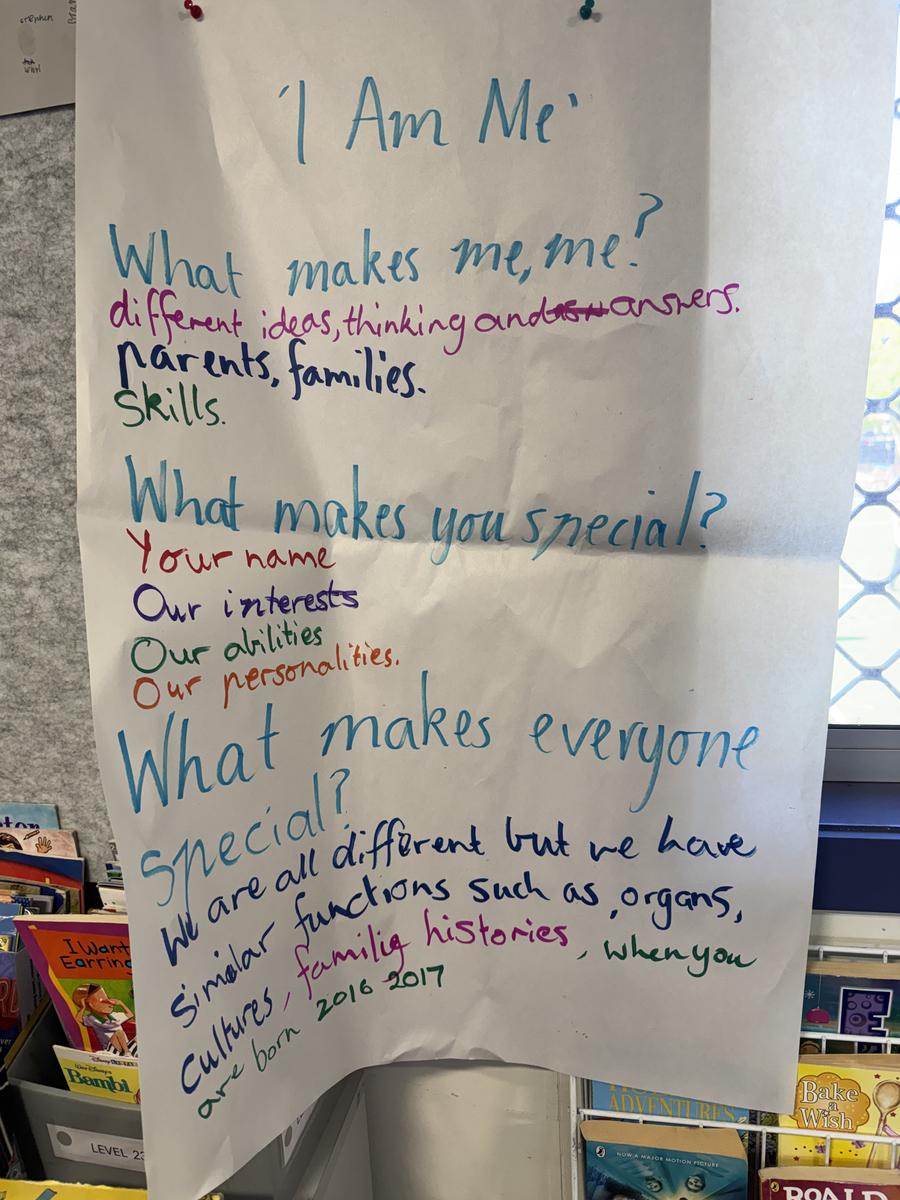 'I Am Me'
What makes me, me?
different ideas, thinking and answers.
parents, families.
Skills.
What makes you special?
Your name
Our interests
Our abilities
Our personalities.
What makes everyone
special?
We are all different but we have
similar functions such as, organs,
Cultures, familie histories, when you
are born 2016 2017
I Want
Earring
Walt Disney's
Bambi
LEVEL 23
ADVENTURES
NOW A MAJOR MOTION PICTURE
E
Bake
a
Wish
ROALD